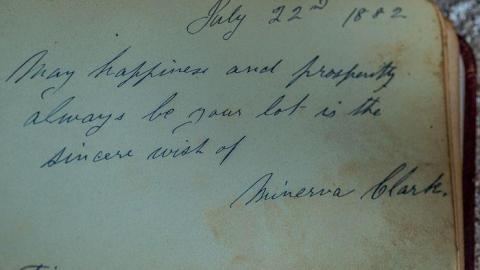 July 22nd 1882
May happiness and prosperity
always be your lot is the
sincere wish of
Minerva Clark.